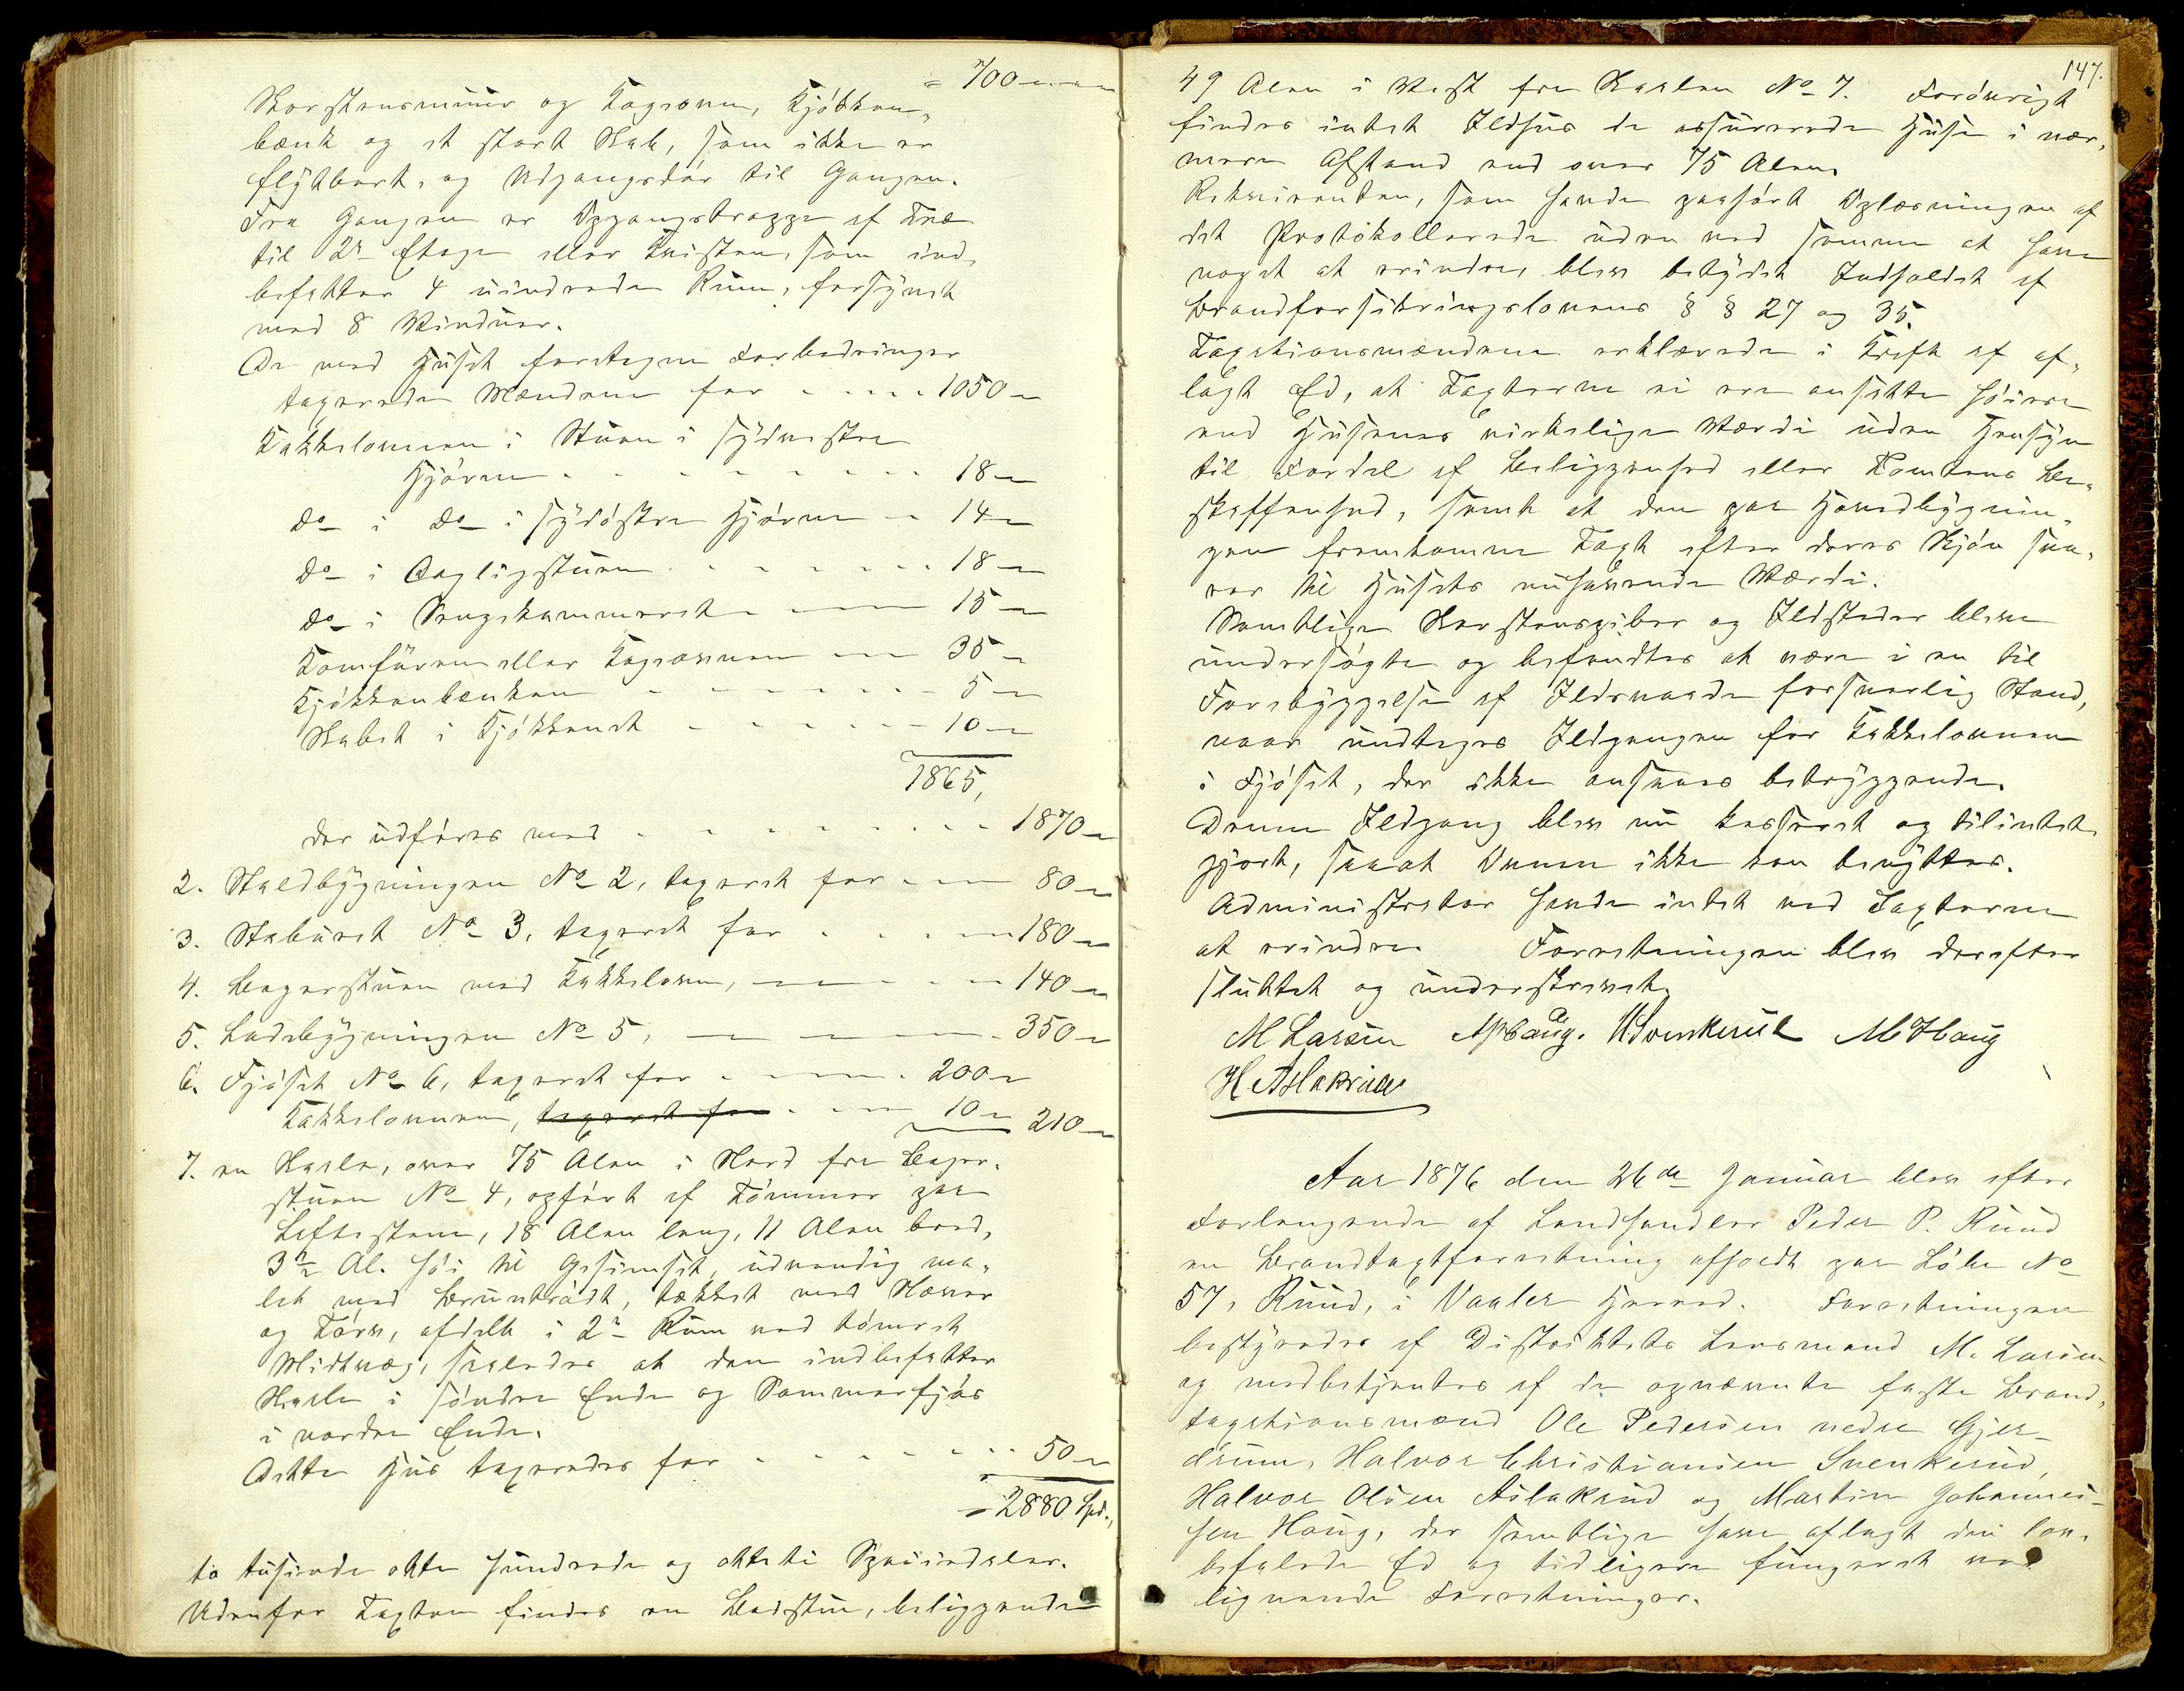 = 700 -
Skorstensmuur og Kogeovn, Kjøkken-
bænk og et stort Skab, som ikke er
flytbart, og Udgangsdør til Gangen.
Fra Gangen er Opgangstrappe af Træ
til 2den Etage eller Kvisten, som ind-
befatter 4 uindrede Rum, forsynet
med 8 Vinduer.
De med Huset foretagne Forbedringer
taxerede Mændene for - - - - 1050 -
Kakkelovnen i Stuen i sydvestre
Hjørne - - - - - - - - 18 -
Do i Do i sydøstre Hjørne - 14 -
Do i Dagligstuen - - - - - - 18 -
Do i Sengekammerset - - - 15 -
Komfüren eller Kogeovnen - - 35 -
Kjøkkenbænken - - - - - - - 5 -
Skabet i Kjøkkenet - - - - - - 10 -
1865,
der udføres med - - - - - - - - - 1870 -
2. Staldbygningen No 2, taxeret for - - - 80 -
3. Staburet No 3, taxeret for - - - - 180 -
4. Bagerstuen med Kakkelovn, - - - - 140 -
5. Ladebygningen No 5, - - - - 350 -
6. Fjøset No 6, taxeret for - - - - 200 -
Kakkelovnen, taxeret for - - - 10 - 210 -
7. en Skaale, over 75 Alen i Nord fra Bager-
stuen No 4, opført af Tømmer paa
Løftesteene, 18 Alen lang, 11 Alen bred,
3½ Al. høi til Gesimset, udvendig ma-
let med Bruntrødt, tækket med Næver
og Torv, afdelt i 2de Rum med tømret
Midtvæg, saaledes at den indbefatter
Skaale i søndre Ende og Sommerfjøs
i nordre Ende.
Dette Hus taxeredes for - - - - - - 50 -
= 2880 Spd.,
to tusinde otte hundrede og otteti Speciedaler.
Udenfor Taxten findes en Badstue, beliggende
147.
49 Alen i Vest fra Skaalen No 7. Forøvrigt
findes intet Ildhus de assurerede Huse i nær-
mere Afstand end over 75 Alen.
Rekvirenten, som havde paahørt Oplæsningen af
det Protokollerede uden ved samme at have
noget at erindre, blev betydet Indholdet af
Brandforsikringslovens § § 27 og 35.
Taxationsmændene erklærede i Kraft af af-
lagt Ed, at Taxterne ei ere ansatte høiere
end Husenes virkelige Værdi uden Hensyn
til Fordel af Beliggenhed eller Tomtens Be-
skaffenhed, samt at den paa Hovedbygnin-
gen fremkomne Taxt efter deres Skjøn sva-
rer til Husets nuhavende Værdi.
Samtlige Skorstenspiber og Ildsteder bleve
undersøgte og befandtes at være i en til
Forebyggelse af Ildsvaade forsvarlig Stand,
naar undtages Ildgangen for Kakkelovnen
i Fjøset, der ikke ansaaes betryggende.
Denne Ildgang blev nu kasseret og tilintet-
gjort, saaat Ovnen ikke kan benyttes.
Administrator havde intet ved Taxterne
at erindre. Forretningen blev derefter
sluttet og underskrevet.
M Larsen HSvenkerud M. Haug
H. Aslakrud
Aar 1876 den 26de Januar blev efter
Forlangende af Landhandler Peder P. Ruud
en Brandtaxtforretning afholdt paa Løbe No
57, Ruud, i Vaaler Herred. Forretningen
bestyredes af Distriktets Lensmand M. Larsen
og medbetjentes af de opnævnte faste Brand-
taxationsmænd Ole Pedersen nedre Gjer-
drum, Halvor Christiansen Svenkerud,
Halvor Olsen Aslakrud og Martin Johannes-
sen Haug, der samtlige have aflagt den lov-
befalede Ed og tidligere fungeret ved
lignende Forretninger.